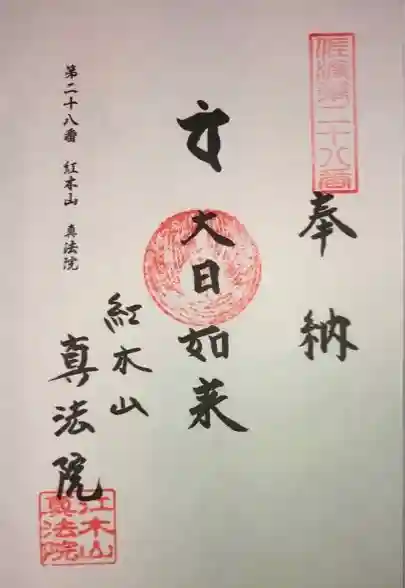 佐渡第二十八番
奉納
大日如来
紅木山
真法院
第二十八番 紅木山 真法院
紅木山
真法院